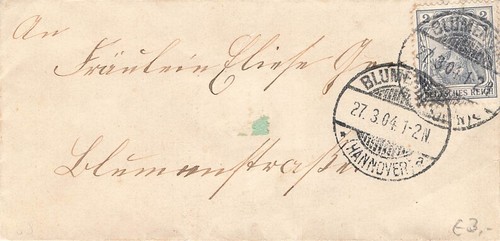 An
2 2
BLUMEN
27.3.04.1
DEUTSCHES REICH
Fräulein Eliese
BLUMEN
27.3.04.1-2N.
* (HANNOVER) a
Blumenstraße
€3,-